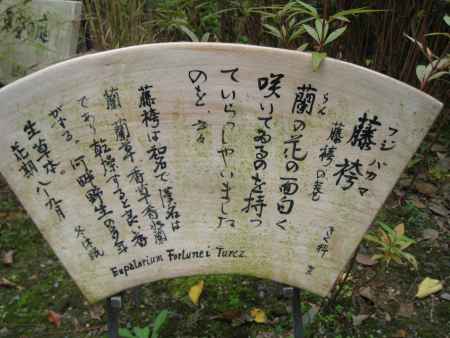 フジバカマ
藤袴 きく科
らん
蘭の花の面白く
咲いてゐるのを持つ
ていらつしやいました
のを、云々
藤袴は和名で漢名は
蘭 蘭草 香草 香蘭
であり乾燥すると良い香
がする。河畔野生の多年
生草本。八、九月
花期
Eupatorium Fortunei Turcz